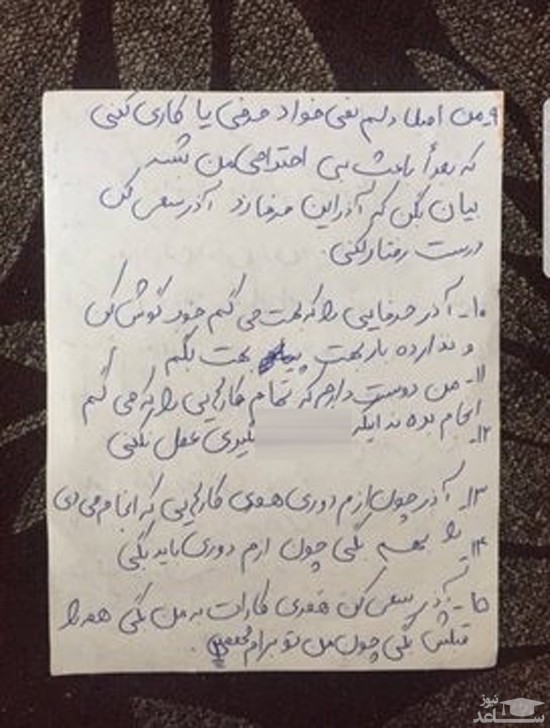 ۹- من اصلا دلم نمی خواد حرفی یا کاری کنی
که بعداً باعث بی احترامی من بشه
بیان بکن کم آذر این حرفا رد آذر سعی کن
درست رفتار کنی.
۱۰- آذر حرفایی را که بهت می گم خوب گوش کن
و نذار ده بار بهت بهت بگم
۱۱- من دوست دارم که تمام کارایی را که می گم
انجام بده نه اینکه
۱۲- نکنی
۱۳- آذر چون ازم دوری همه ی کارایی که انجام می دی
را بهم بگی چون ازم دوری باید بگی
۱۴-
۱۵- آذر سعی کن همه ی کارات به من بگی همه را
قبلش بگی چون من تو برام مهمی.
نیوز
ساعد